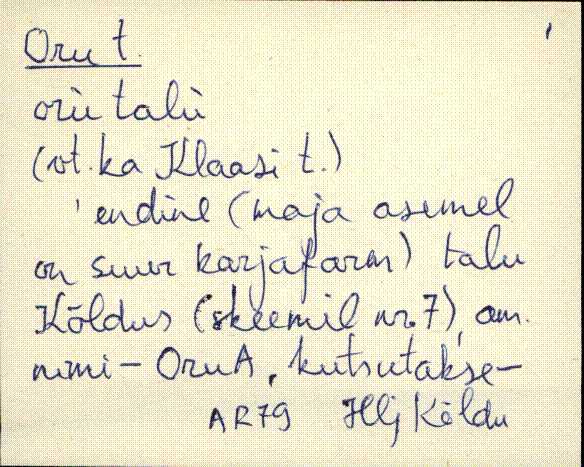 Oru t.
orù talù
(vt. ka Klaasi t.)
'endine (maja asemel
on suur karjafarm) talu
Kõldus (skeemil nr. 7), am.
nimi - Oru A, kutsutakse -
AR79 Hlj Kõldu